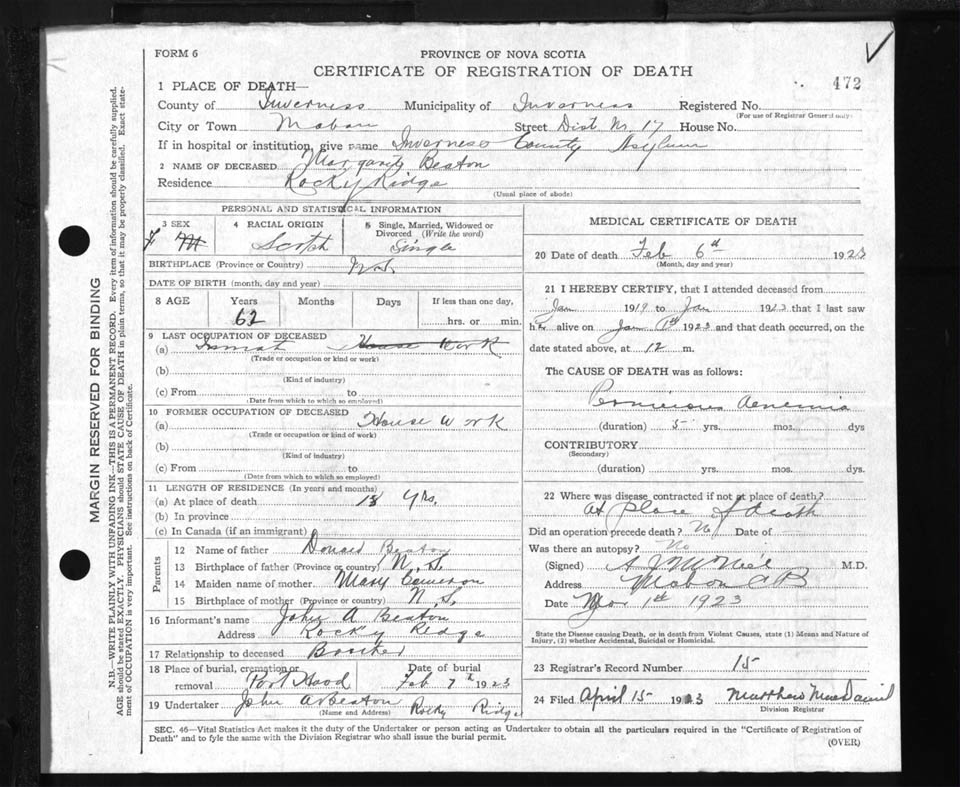 FORM 6
PROVINCE OF NOVA SCOTIA
CERTIFICATE OF REGISTRATION OF DEATH
472
1 PLACE OF DEATH—
County of Inverness Municipality of Inverness Registered No.
(For use of Registrar General only)
City or Town Mabou Street Dist Nr 17 House No.
If in hospital or institution, give name Inverness County Asylum
2 NAME OF DECEASED Margaret Beaton
Residence Rocky Ridge
(Usual place of abode)
PERSONAL AND STATISTICAL INFORMATION
3 SEX 4 RACIAL ORIGIN 5 Single, Married, Widowed or Divorced (Write the word)
F M Scotch Single
BIRTHPLACE (Province or Country) N.S.
DATE OF BIRTH (month, day and year)
8 AGE Years Months Days If less than one day,
62 hrs. or min.
9 LAST OCCUPATION OF DECEASED
(a) Inmate House Work
(Trade or occupation or kind or work)
(b)
(Kind of industry)
(c) From to
(Date from which to which so employed)
10 FORMER OCCUPATION OF DECEASED
(a) House Work
(Trade or occupation or kind of work)
(b)
(Kind of industry)
(c) From to
(Date from which to which so employed)
11 LENGTH OF RESIDENCE (In years and months)
(a) At place of death 18 Yrs.
(b) In province
(c) In Canada (if an immigrant)
Parents
12 Name of father Donald Beaton
13 Birthplace of father (Province or country) N.S.
14 Maiden name of mother Mary Cameron
15 Birthplace of mother (Province or country) N.S.
16 Informant's name John A Beaton
Address Rocky Ridge
17 Relationship to deceased Brother
18 Place of burial, cremation or removal Port Hood Date of burial Feb 7th 1923
19 Undertaker John A Beaton
(Name and Address) Rocky Ridge
MEDICAL CERTIFICATE OF DEATH
20 Date of death Feb 6th 1923
(Month, day and year)
21 I HEREBY CERTIFY, that I attended deceased from
Jan 1919 to Jan 1923 that I last saw
her alive on Jan 1923 and that death occurred, on the
date stated above, at 12 m.
The CAUSE OF DEATH was as follows:
Pernicious Aenemia
(duration) 5 yrs. mos. dys
CONTRIBUTORY
(Secondary)
(duration) yrs. mos. dys.
22 Where was disease contracted if not at place of death?
At place of death
Did an operation precede death? No Date of
Was there an autopsy? No
(Signed) A J McNeil M.D.
Address Mabou C B
Date Mar 1st 1923
State the Disease causing Death, or in death from Violent Causes, state (1) Means and Nature of
Injury, (2) whether Accidental, Suicidal or Homicidal.
23 Registrar's Record Number 15
24 Filed April 15 1923 Matthew MacDaniel
Division Registrar
SEC. 46—Vital Statistics Act makes it the duty of the Undertaker or person acting as Undertaker to obtain all the particulars required in the "Certificate of Registration of
Death" and to fyle the same with the Division Registrar who shall issue the burial permit.
(OVER)
MARGIN RESERVED FOR BINDING
N.B.—WRITE PLAINLY WITH UNFADING INK—THIS IS A PERMANENT RECORD. Every item of information should be carefully supplied.
AGE should be stated EXACTLY. PHYSICIANS should STATE CAUSE OF DEATH in plain terms, so that it may be properly classified. Exact state-
ment of OCCUPATION is very important. See instructions on back of Certificate.